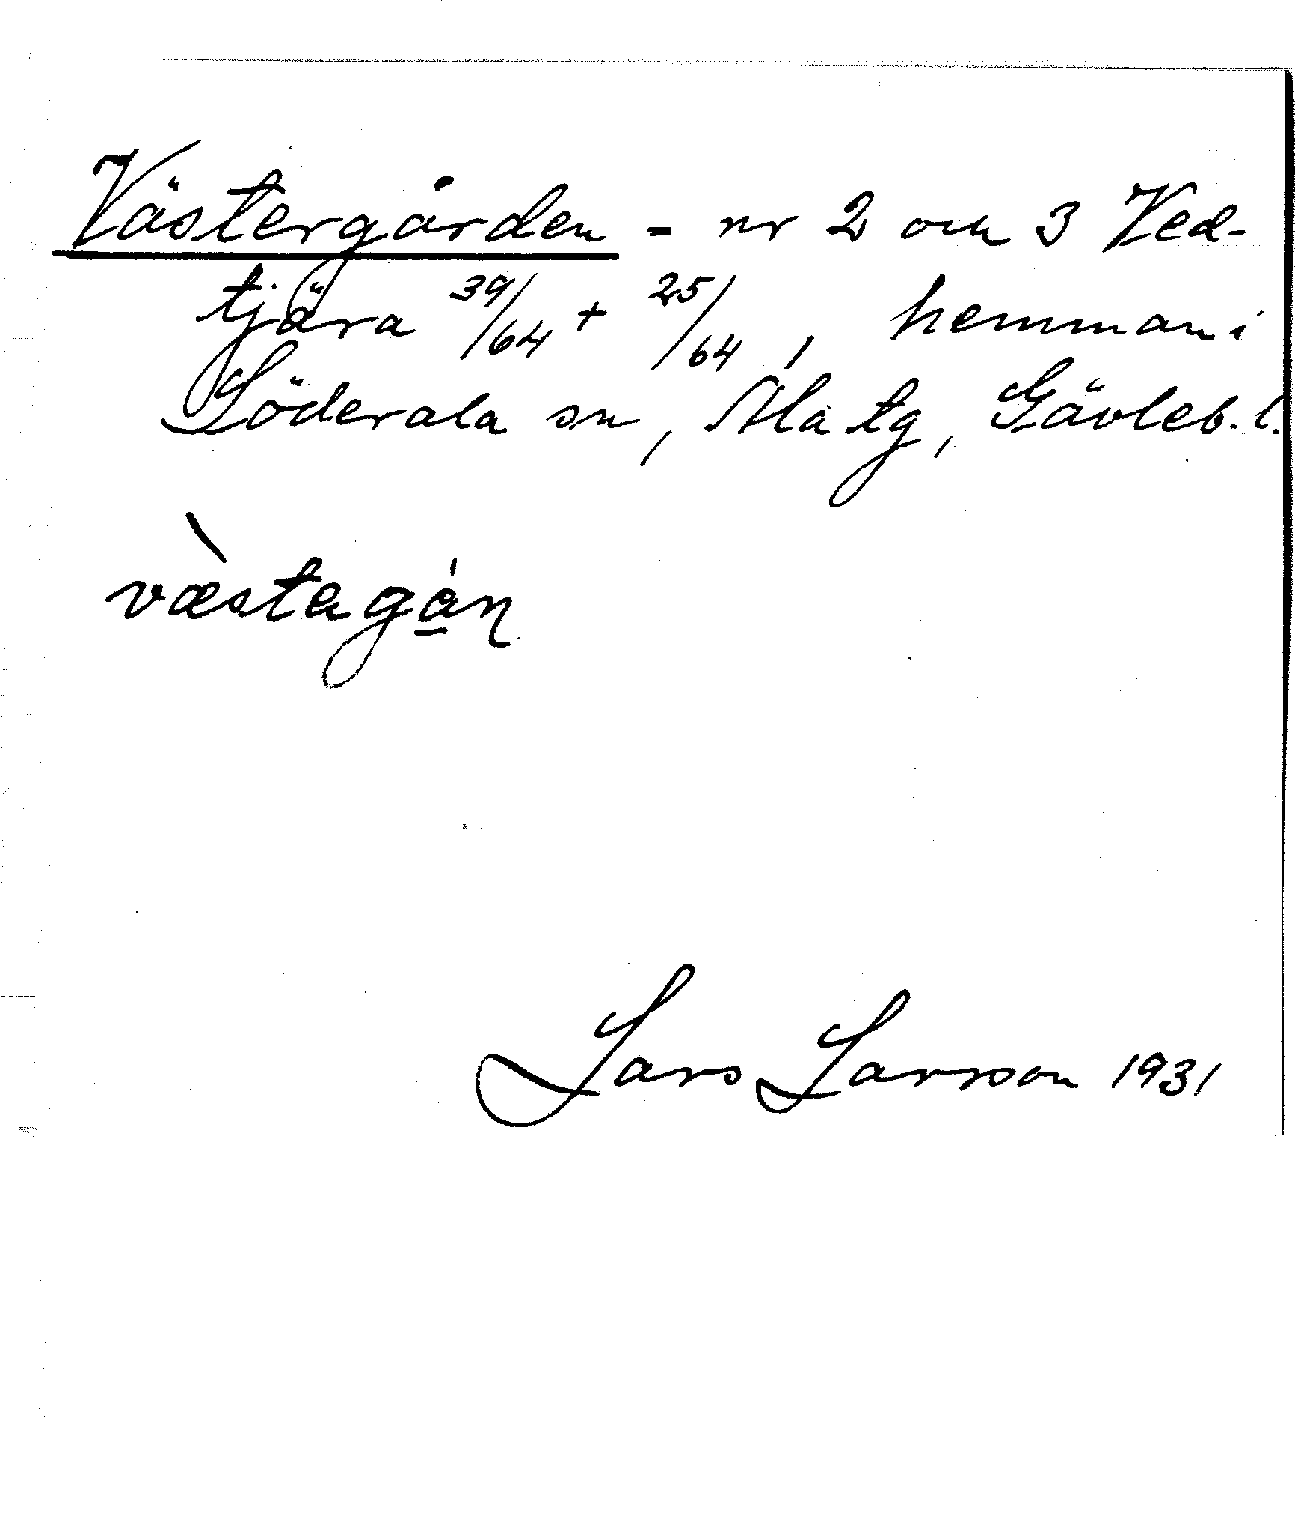 Västergården - nr 2 och 3 Ved-
tjära 39/64 + 25/64, hemman i
Söderala sn, Ala tg, Gävleb. l.
væ̀stagá̱ṇ
Lars Larsson 1931